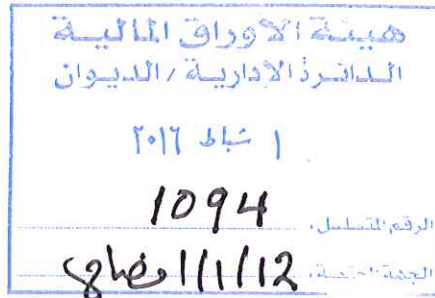 هيئة الاوراق المالية
الدائرة الادارية / الديوان
١ شباط ٢٠١٦
الرقم المتسلسل: 1094
الجهة المختصة: 1/1/12